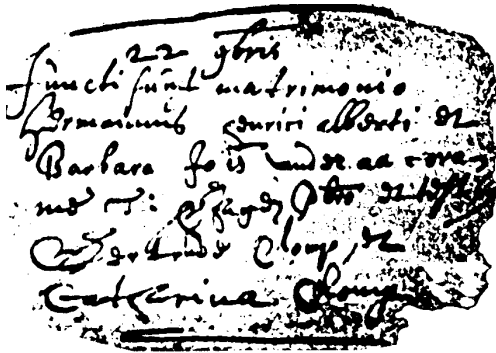 22 9bris
functi sunt matrimonio
Hermannus Henrici alberti et
Barbara Jois cora
me et testibus
Gertrude Clomp, et
Catharina Clomp